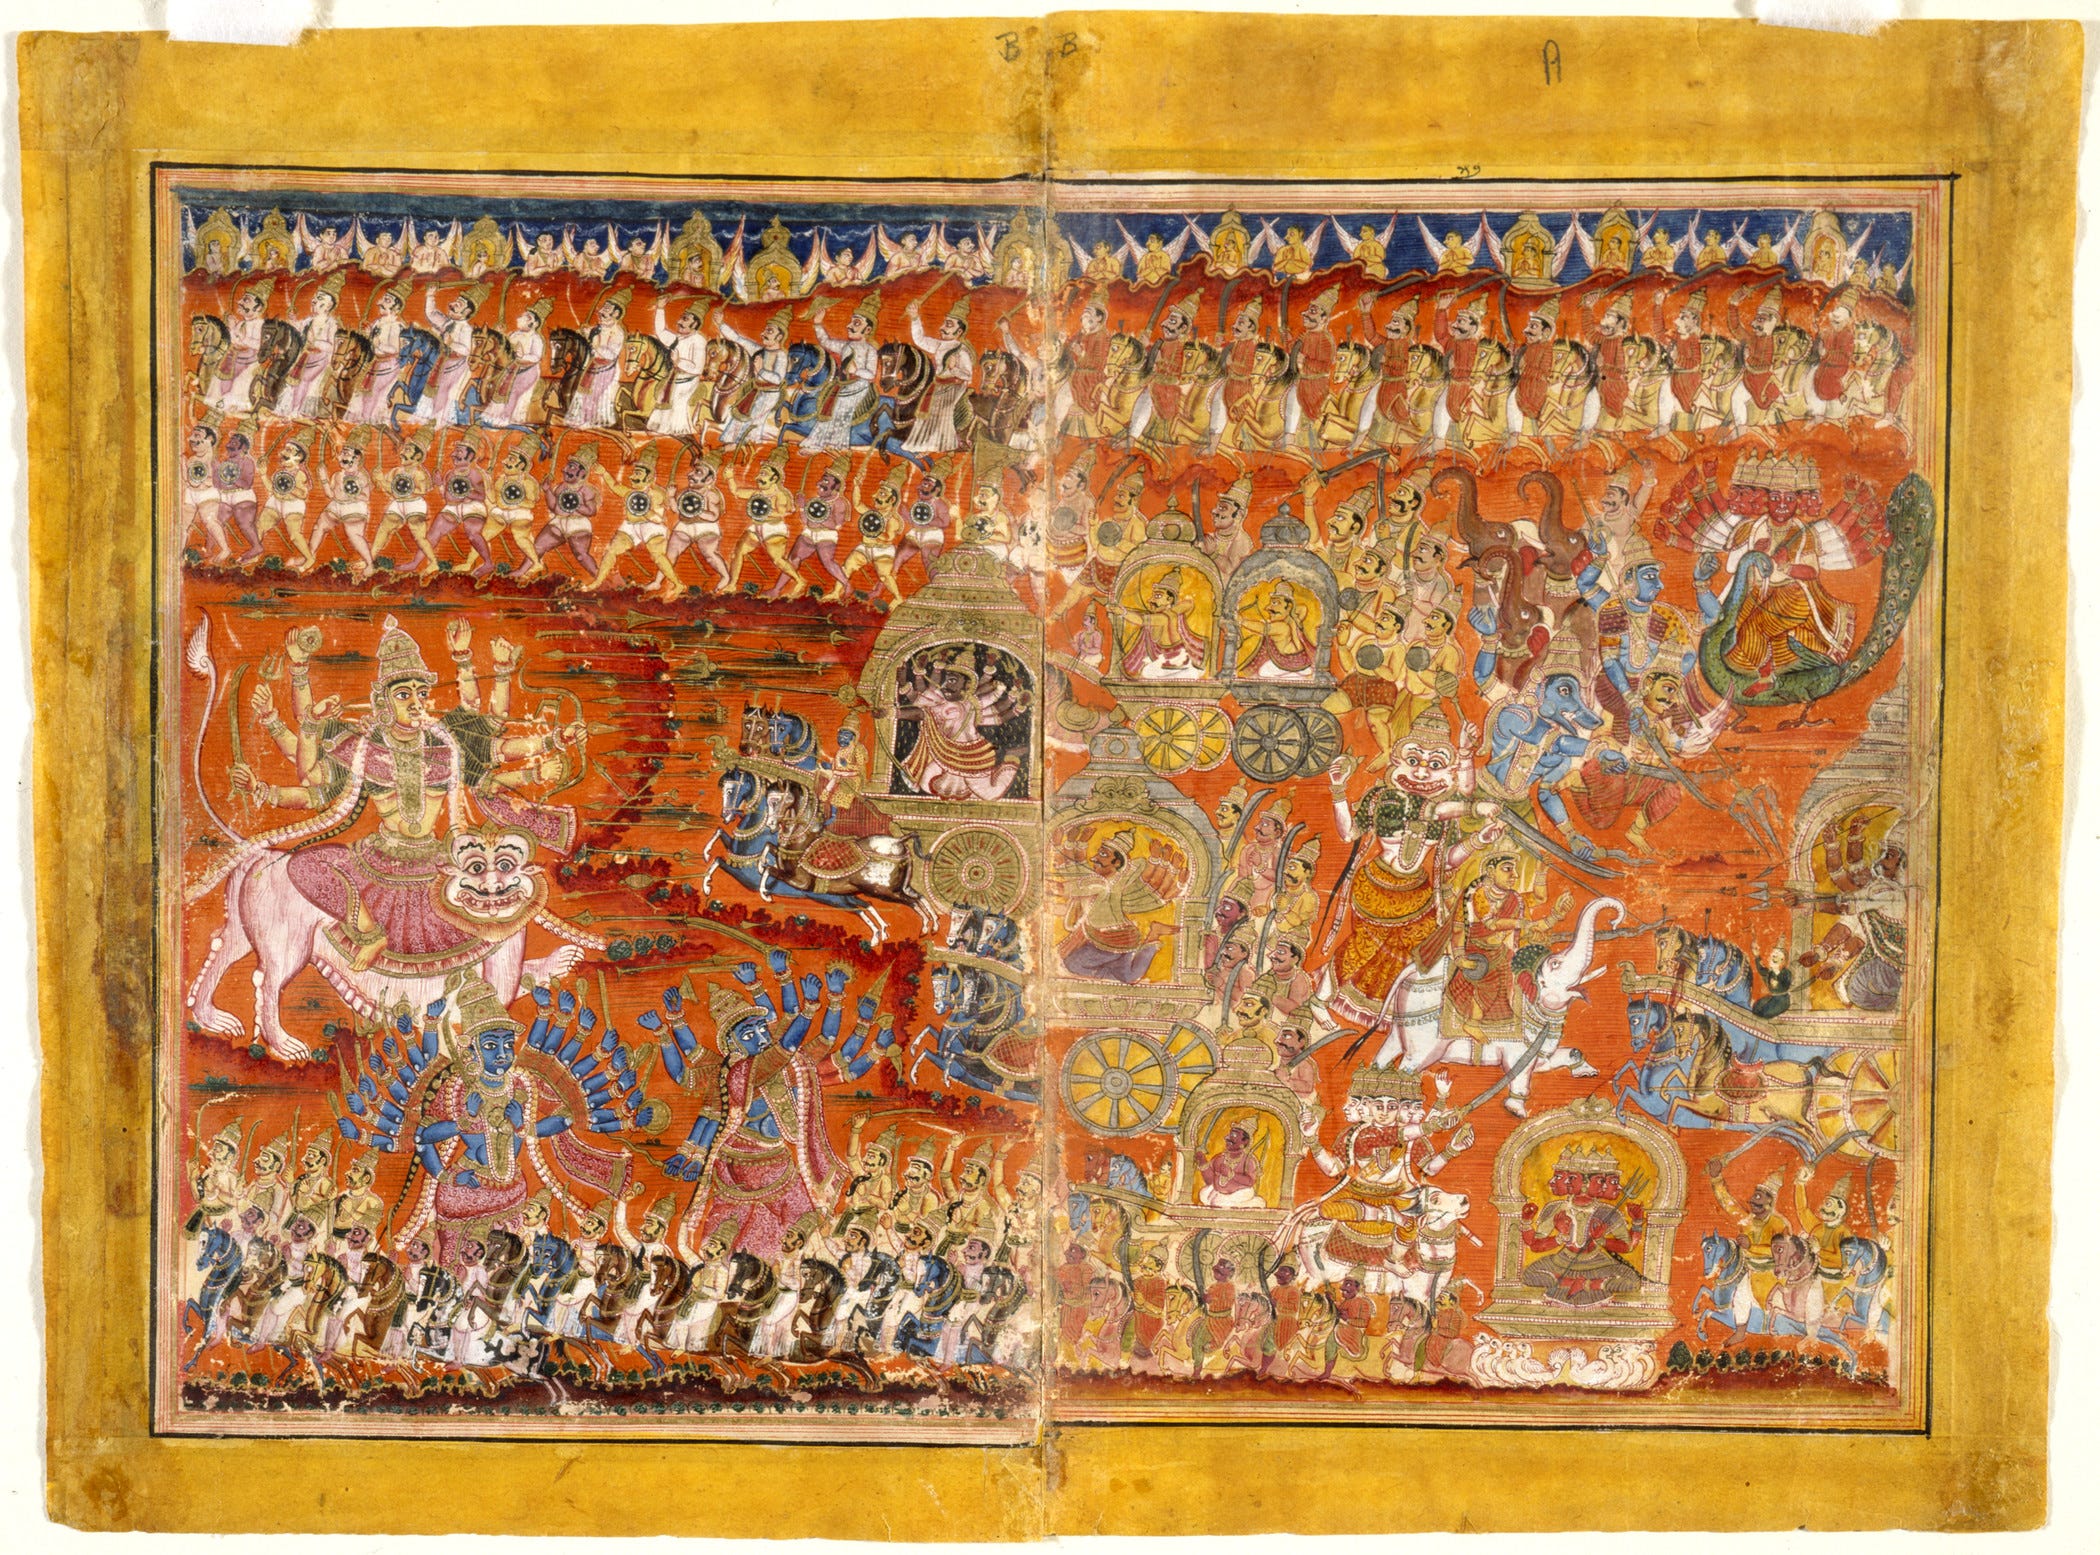 B B A